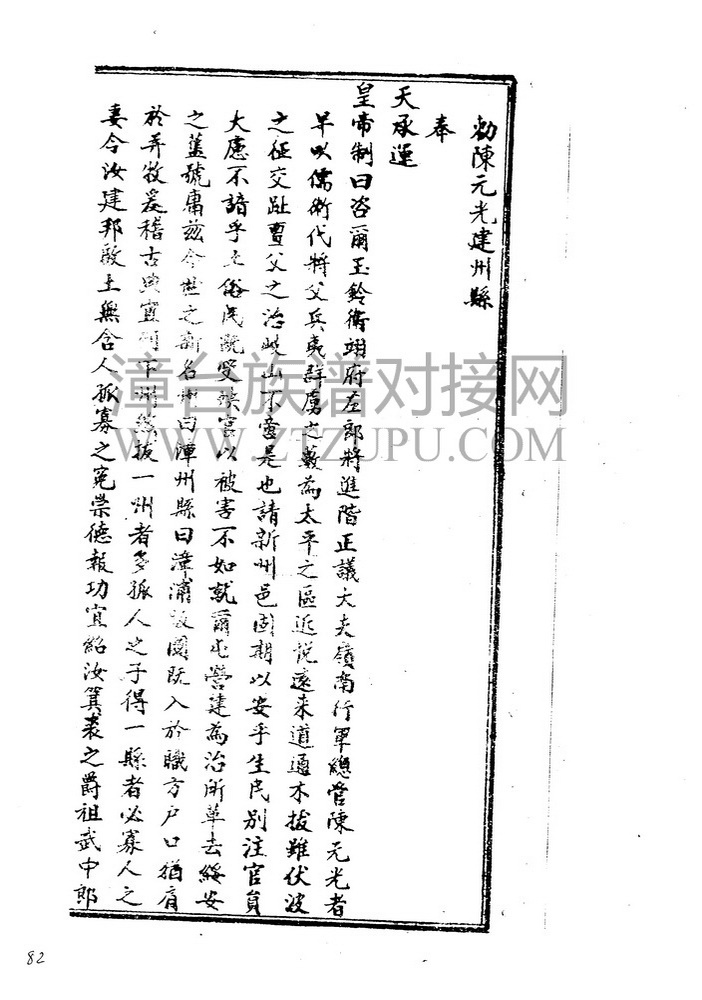 勅陳元光建州縣
奉
天承運
皇帝制曰咨爾玉鈴衛翊府左郎將進階正議大夫嶺南行軍總管陳元光者
早以儒術代將父兵夷群虜之藪為太平之區近説遠来道通木拔雖伏波
之征交趾亶父之治岐山不啻是也請新州邑固期以安乎生民别注官員
大慮不諳乎土俗民既受殃官以被害不如就爾屯營建為治所革去綏安
之舊號庸兹今世之新名州曰漳州縣曰漳浦版圖既入於職方户口猶肩
於弄牧爰稽古典宜 拔一州者多孤人之子得一縣者必寡人之
妻今汝建邦啟土無含人孤寡之冤崇德報功宜紹汝箕裘之爵祖武中郎
漳台族谱对接网
WWW.ZTZUPU.COM
82